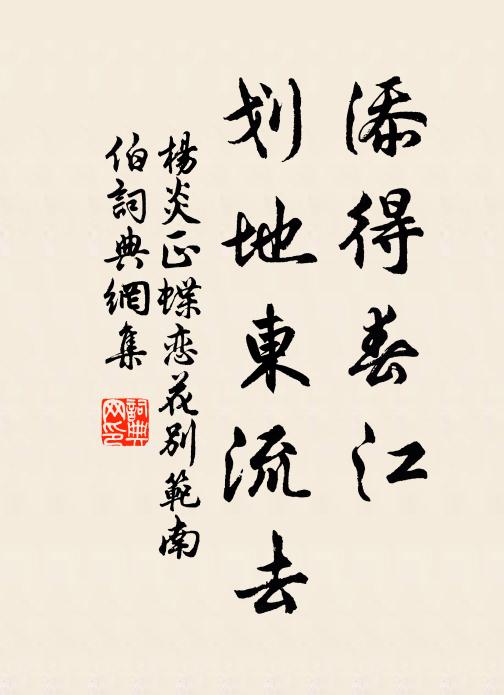 添得春江
划地東流去
楊炎正蝶恋花别範南
伯詞典網集
詞典
网印